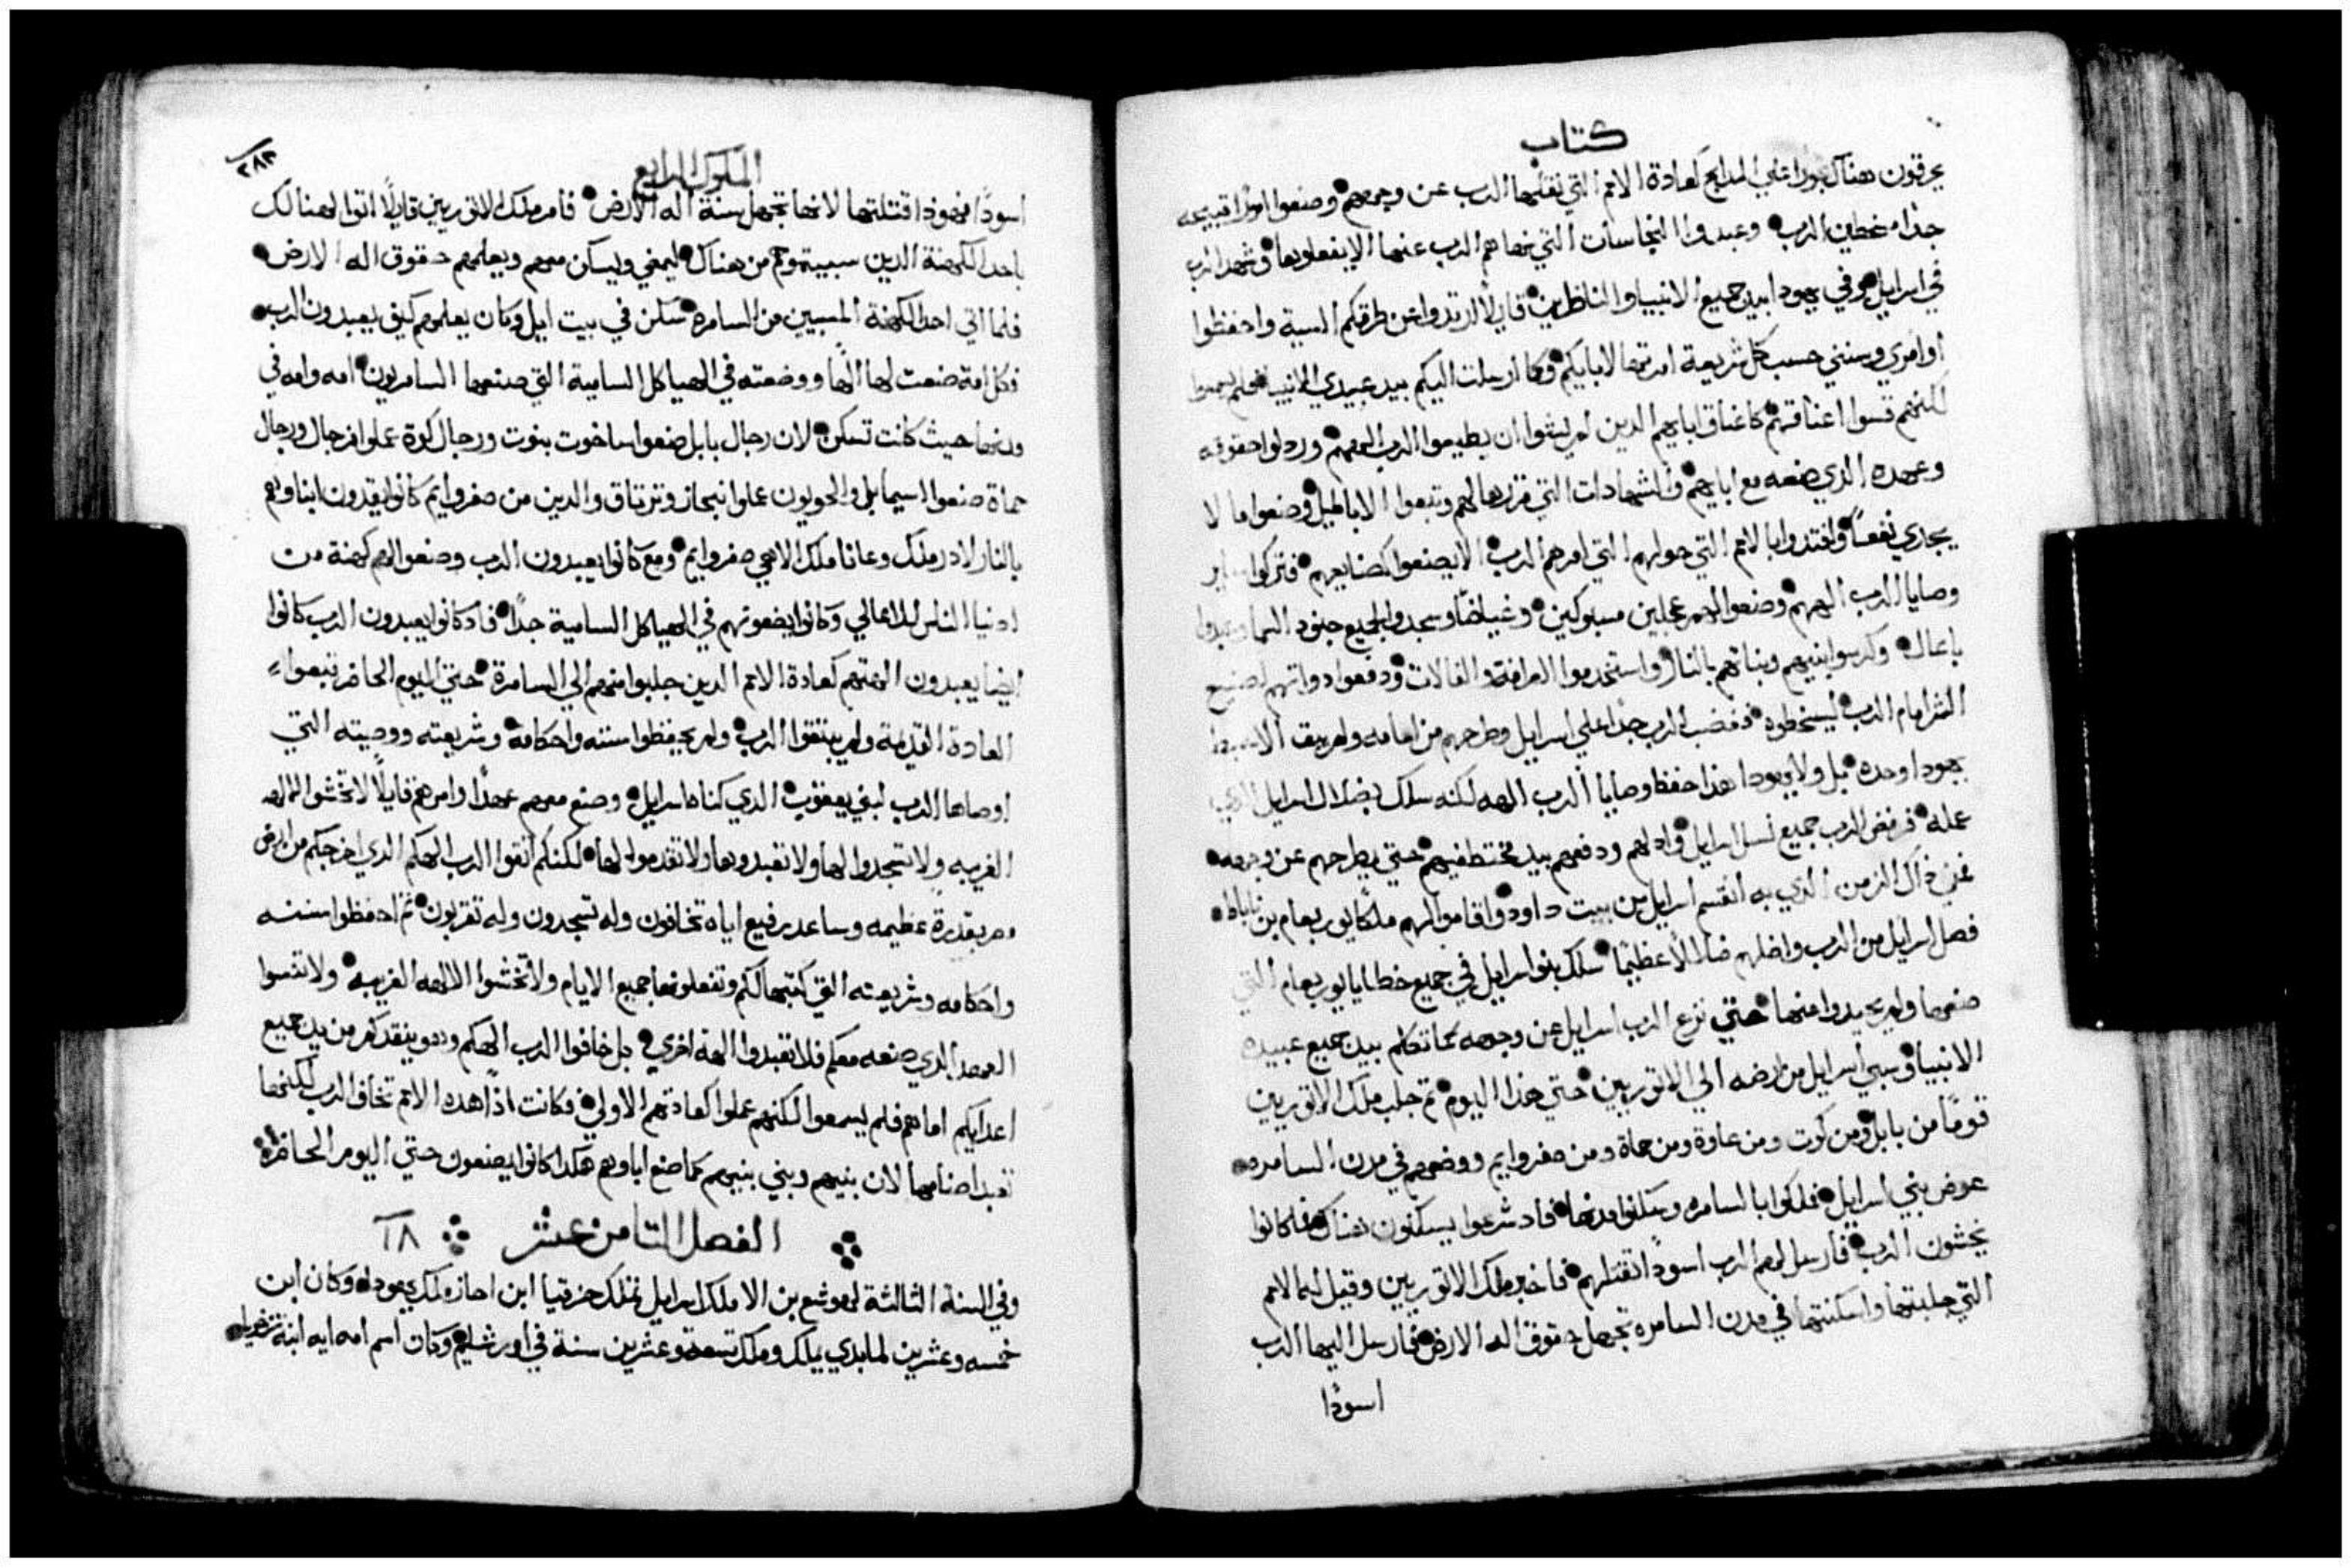 كتاب
يحرقون هناك بخورا علي المدابح كعادة الامم التي نقلها الرب عن وجههم وصنعوا امورا قبيحه
جدا مغيظين الرب وعبدوا النجاسات التي نهاهم الرب عنها الا يفعلوها وشهد الرب
في اسراييل وفي يهودا بيد جميع الانبيا والناظرين قايلا ارتدوا عن طرقكم السية واحفظوا
اوامري وسنني حسب كل شريعة امرتها لابايكم وكما ارسلت اليكم بيد عبيدي الانبيا فلم يسمعوا
لكنهم قسوا اعناقهم كاعناق اباييهم الدين لم يشوا ان يطيعوا الرب الههم وردلوا حقوقه
وعهده الذي صنعه مع اباييهم والشهادات التي قررها لهم وتبعوا الاباطيل وصنعوا ما لا
يجدي نفعا واقتدوا بالامم التي حولهم التي امرهم الرب الا يصنعوا كصنايعهم فتركوا ساير
وصايا الرب الههم وصنعوا لهم عجلين مسبوكين وغياضا وسجدوا لجميع جنود السما وعبدوا
باعال وكرسوا بنيهم وبناتهم بالنار واستخدموا العرافة والفالات ودفعوا دواتهم لصنيع
الشر امام الرب ليسخطوه فغضب الرب جدا علي اسراييل وطرحهم من امامه ولم يبق الا سبط
يهودا وحده بل ولا يهودا هذا حفظ وصايا الرب الهه لكنه سلك بضلال اسراييل الذي
عمله فرفض الرب جميع نسل اسراييل وادلهم ودفعهم بيد مختطفيهم حتي يطرحهم عن وجهه
فمن ذاك الزمن الذي به انقسم اسراييل من بيت داود واقاموا لهم ملكا يوربعام بن ناباط
فصل اسراييل من الرب واضلهم ضلالا عظيما سلك بنو اسراييل في جميع خطايا يوربعام التي
صنعها ولم يحيدوا عنها حتي نزع الرب اسراييل عن وجهه كما تكلم بيد جميع عبيده
الانبيا وسبي اسراييل من ارضه الي الاتوريين حتي هذا اليوم ثم جلب ملك الاتوريين
قوما من بابل ومن كوت ومن عاوة ومن حماة ومن صفروايم ووضعهم في مدن السامره
عوض بني اسراييل فملكوا بالسامره وسكنوا مدنها فاد شرعوا يسكنون هناك فما كانوا
يخشون الرب فارسل لهم الرب اسودا تقتلهم فاخبر ملك الاتوريين وقيل له الامم
التي جلبتها واسكنتها في مدن السامره تجهل حقوق اله الارض فارسل اليها الرب
اسودا
الملوك الرابع
٢٨٣
اسودا فهوذا قتلتها لانها تجهل سنة اله الارض فامر ملك الاتوريين قايلا اتوا لهنالك
باحد الكهنة الدين سبيتموهم من هناك ليمضي ويسكن معهم ويعلمهم حقوق اله الارض
فلما اتي احد الكهنة المسبيين من السامره سكن في بيت ايل وكان يعلمهم كيف يعبدون الرب
فكل امة صنعت لها الها ووضعته في الهياكل السامية التي صنعها السامريون امه وامه في
مدنها حيث كانت تسكن لان رجال بابل صنعوا ساخوت بنوت ورجال كوت عملوا نرجال ورجال
حماة صنعوا اسيما والحويون عملوا نبحاز وترتاق والدين من صفروايم كانوا يقدون ابناوهم
بالنار لادرملك وعاناملك الاهي صفروايم ومع كانوا يعبدون الرب وصنعوا لهم كهنة من
ادنيا الناس للاعالي وكانوا يضعونهم في الهياكل السامية جدا فاد كانوا يعبدون الرب كانوا
ايضا يعبدون الهتهم كعادة الامم الدين جلبوا منهم الي السامرة حتي اليوم الحاضر تبعوا
العادة القديمة ولم يتقوا الرب ولم يحفظوا سننه واحكامه وشريعته ووصيته التي
اوصاها الرب لبني يعقوب الدي كناه اسراييل وصنع معهم عهدا وامرهم قايلا لا تخشوا الالهه
الغريبه ولا تسجدوا لها ولا تعبدوها ولا تقدموا لها لكنكم اتقوا الرب الهكم الدي اخرجكم من ارض
مصر بقدرة عظيمه وساعد رفيع اياه تخافون وله تسجدون وله تقربون ثم احفظوا سننه
واحكامه وشريعته التي كتبها لكم وتفعلونها جميع الايام ولا تخشوا الالهه الغريبه ولا تنسوا
العهد الدي صنعه معكم فلا تعبدوا الهة اخري بل خافوا الرب الهكم وهو ينقدكم من يد جميع
اعدايكم اما هم فلم يسمعوا لكنهم عملوا كعادتهم الاولي فكانت اذا هده الامم تخاف الرب لكنها
تعبد اصنامها لان بنيهم وبني بنيهم كما صنع اباوهم هكدا كانوا يصنعون حتي اليوم الحاضر
الفصل الثامن عشر ١٨
وفي السنة الثالثة لهوشع بن الا ملك اسراييل تملك حزقيا ابن احاز ملك يهودا وكان ابن
خمسه وعشرين لما بدي يملك وملك تسعة وعشرين سنة في اورشليم وكان اسم امه ابيه ابنة زخريا